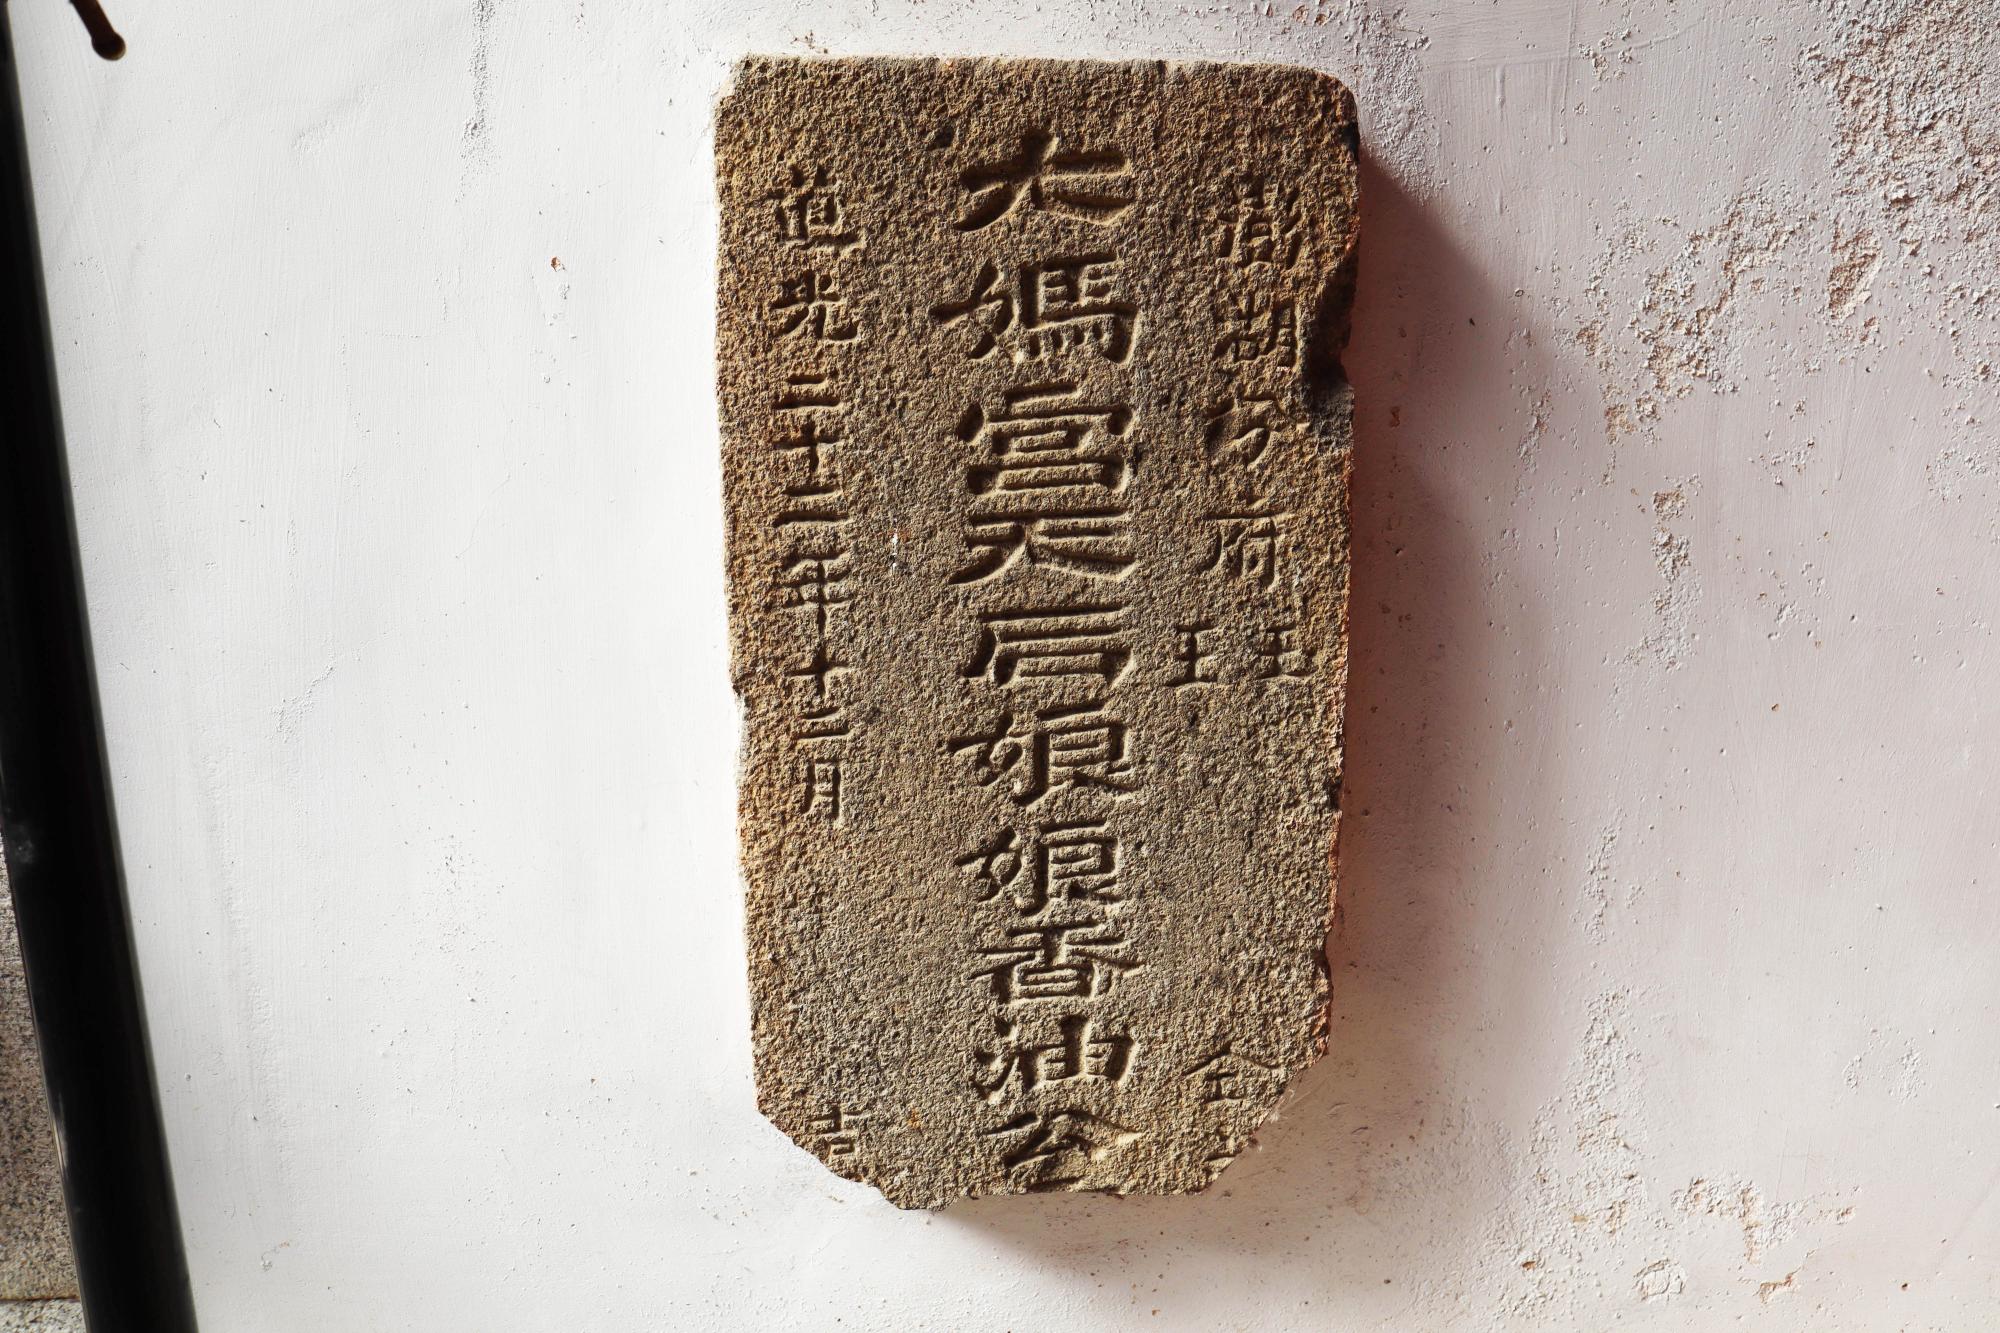 澎湖分府 王 王 仝
大媽宮天后娘娘香油公
道光二十二年十二月 吉